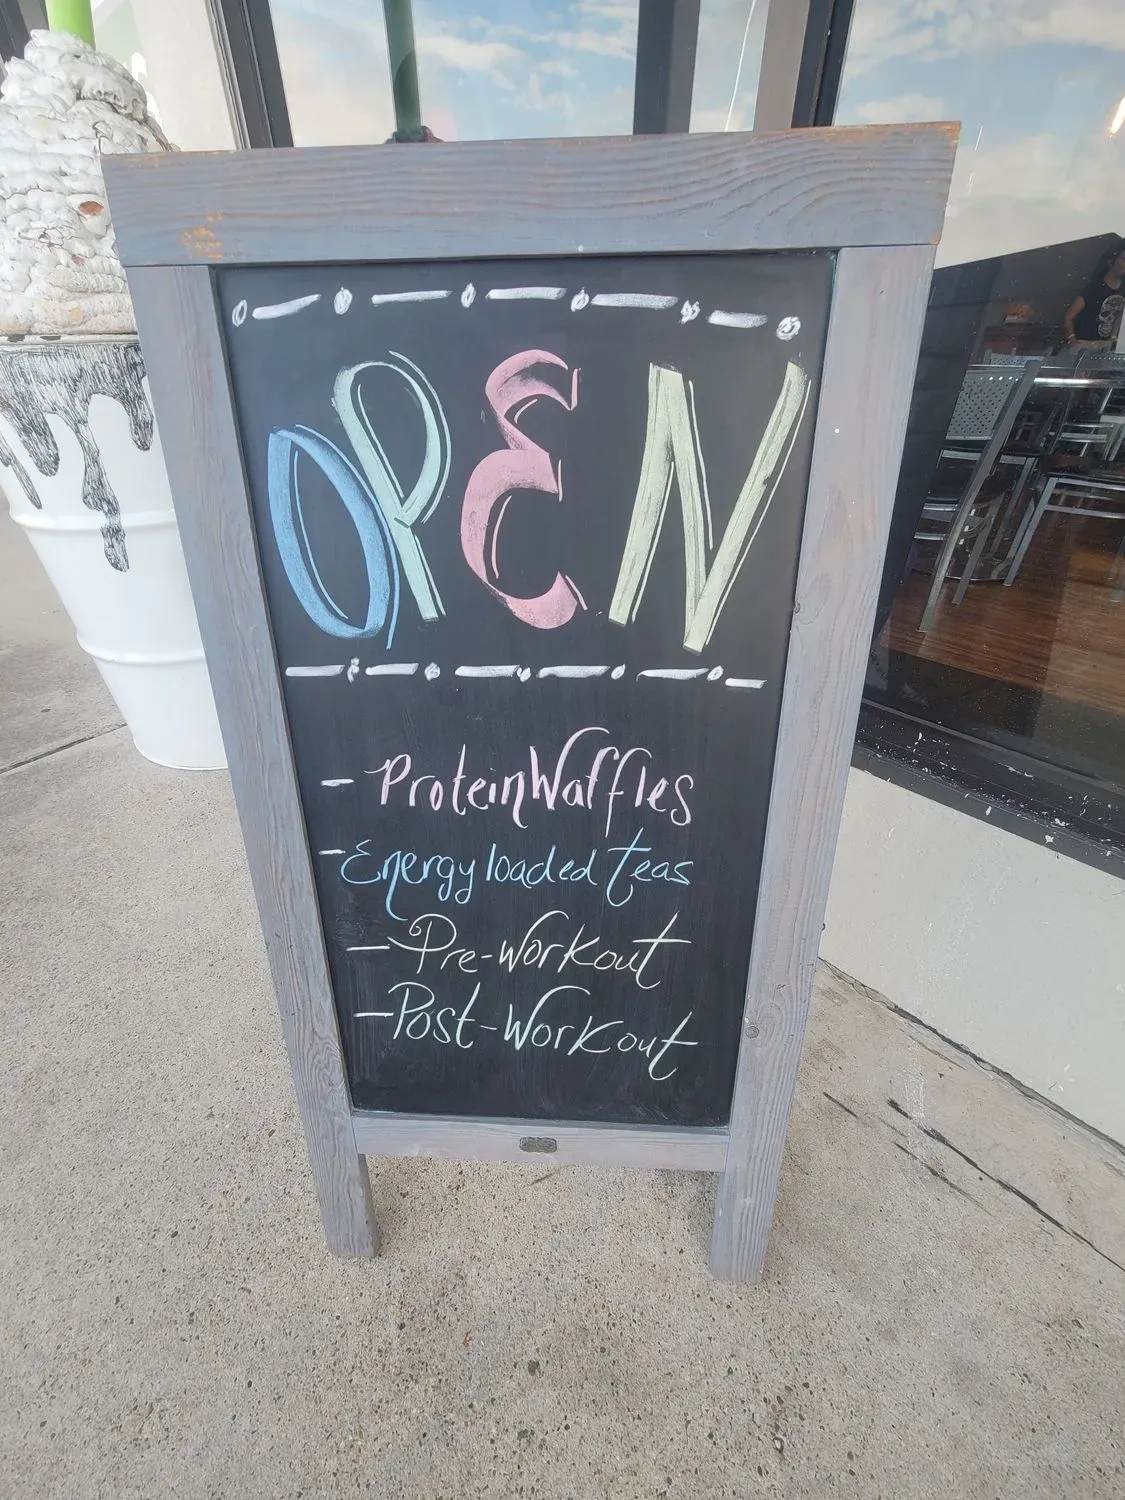 OPEN
- Protein Waffles
- Energy loaded teas
- Pre-Workout
- Post-Workout